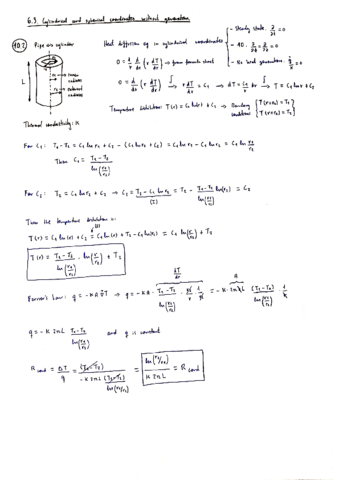 6.3. Cylindrical and spherical coordinates without generation
10.2 Pipe as cylinder
Heat diffusion eq in cylindrical coordinates
- Steady state. ∂/∂t = 0
- 1D. ∂/∂φ = ∂/∂z = 0
- No heat generation. q̇ = 0
0 = 1/r d/dr (r dT/dr) → from formula sheet
0 = d/dr (r dT/dr) ∫→ r dT/dr = C₁ → dT = C₁/r dr ∫→ T = C₁ ln r + C₂
L
r₁ → inner radius
r₂ → external radius
Temperature distribution: T(r) = C₁ ln r + C₂ → Boundary conditions { T(r=r₁) = T₁
T(r=r₂) = T₂
Thermal conductivity: K
For C₁: T₁ - T₂ = C₁ ln r₁ + C₂ - (C₁ ln r₂ + C₂) = C₁ ln r₁ - C₁ ln r₂ = C₁ ln r₁/r₂
Then C₁ = (T₁ - T₂)/ln(r₁/r₂)
For C₂: T₂ = C₁ ln r₂ + C₂ → C₂ = T₂ - C₁ ln r₂ = T₂ - (T₁ - T₂)/ln(r₁/r₂) ln(r₂) = C₂
(1)
Then the temperature distribution is:
T(r) = C₁ ln(r) + C₂ = C₁ ln(r) + T₂ - C₁ ln(r₂) = C₁ ln(r/r₂) + T₂
T(r) = (T₁ - T₂)/ln(r₁/r₂) · ln(r/r₂) + T₂
Fourier's Law: q = -KA ∇T → q = -KA ·
dT/dr
q = -K 2πL (T₁ - T₂)/ln(r₁/r₂) and q is constant
R cond = ΔT/q = (T₁ - T₂)/(-K 2πL (T₁ - T₂)/ln(r₁/r₂)) = ln(r₂/r₁)/(K 2πL) = R cond